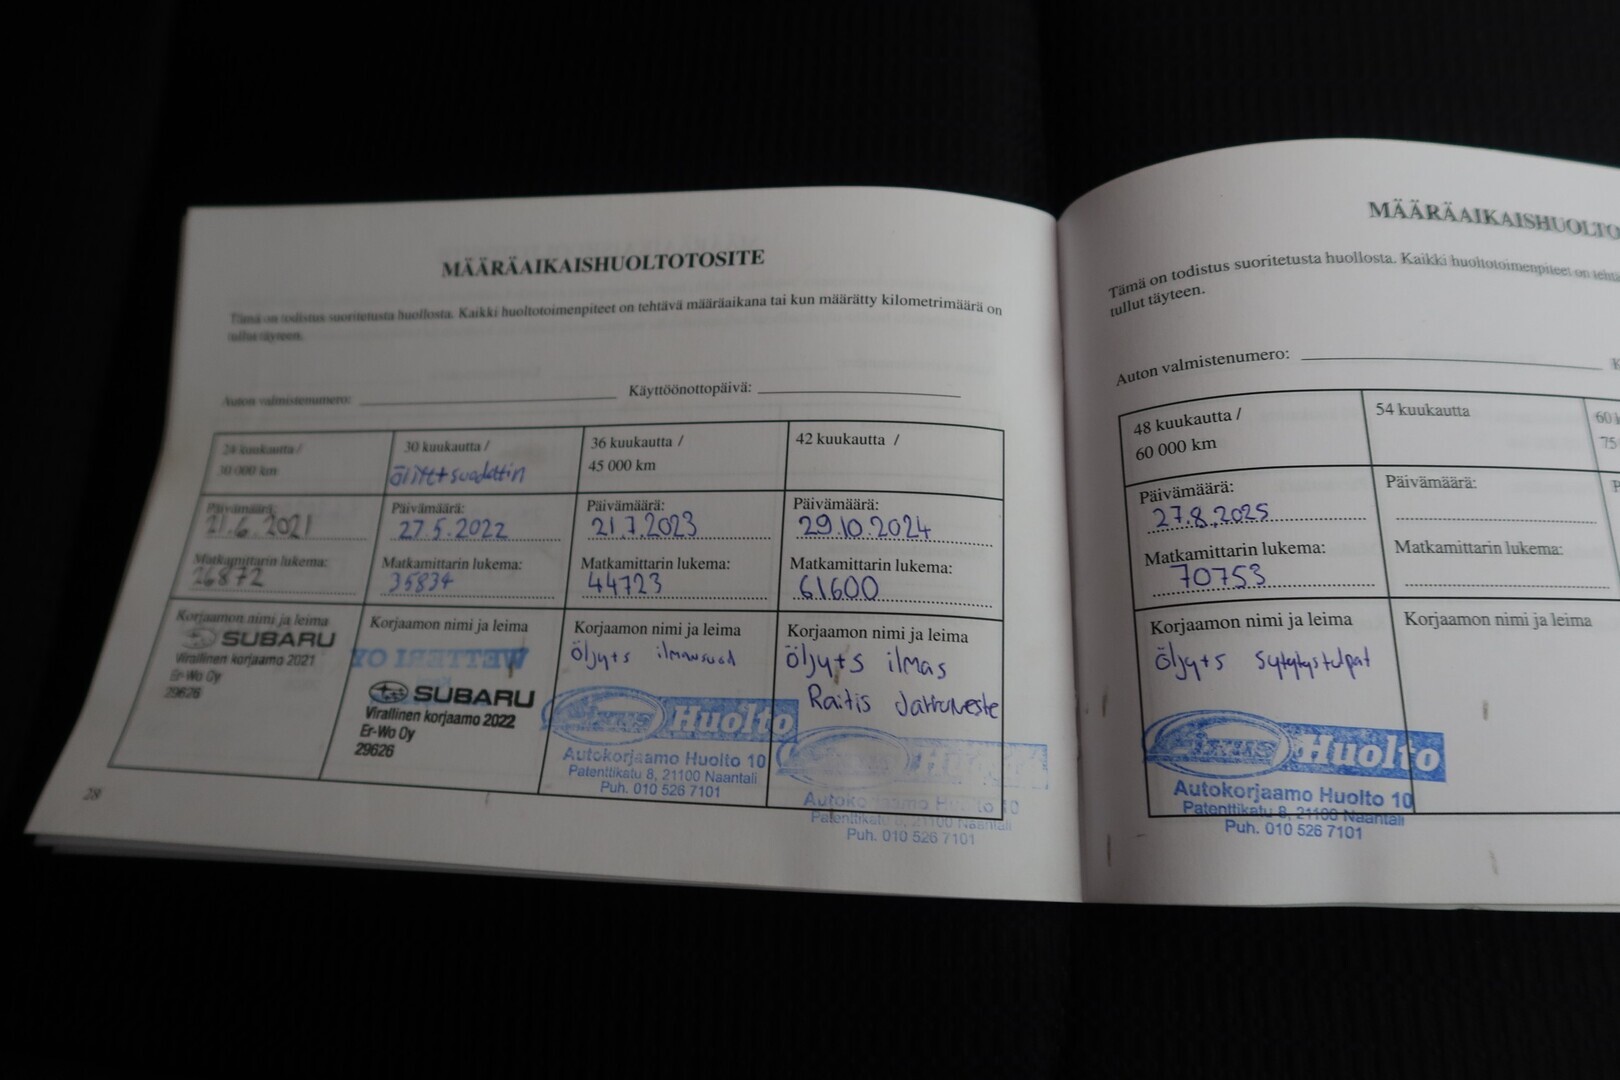 MÄÄRÄAIKAISHUOLTOTOSITE
Tämä on todistus suoritetusta huollosta. Kaikki huoltotoimenpiteet on tehtävä määräaikana tai kun määrätty kilometrimäärä on
tullut täyteen.
Auton valmistenumero: Käyttöönottopäivä:
24 kuukautta /
30 000 km
Päivämäärä:
21.6.2021
Matkamittarin lukema:
26872
Korjaamon nimi ja leima
SUBARU
Virallinen korjaamo 2021
Er-Wo Oy
29626
30 kuukautta /
Päivämäärä:
27.5.2022
Matkamittarin lukema:
35834
Korjaamon nimi ja leima
WETTERI OY
SUBARU
Virallinen korjaamo 2022
Er-Wo Oy
29626
36 kuukautta /
45 000 km
Päivämäärä:
21.7.2023
Matkamittarin lukema:
44723
Korjaamon nimi ja leima
öljy+s ilmansuod
Huolto
Autokorjaamo Huolto 10
Patenttikatu 8, 21100 Naantali
Puh. 010 526 7101
42 kuukautta /
Päivämäärä:
29.10.2024
Matkamittarin lukema:
61600
Korjaamon nimi ja leima
öljy+s ilmas
Raitis Jarruneste
Autokorjaamo Huolto 10
Patenttikatu 8, 21100 Naantali
Puh. 010 526 7101
28
MÄÄRÄAIKAISHUOLTO
Tämä on todistus suoritetusta huollosta. Kaikki huoltotoimenpiteet on
tullut täyteen.
Auton valmistenumero:
48 kuukautta /
60 000 km
Päivämäärä:
27.8.2025
Matkamittarin lukema:
70753
Korjaamon nimi ja leima
öljy+s Sytytystulpat
Huolto
Autokorjaamo Huolto 10
Patenttikatu 8, 21100 Naantali
Puh. 010 526 7101
54 kuukautta
Päivämäärä:
Matkamittarin lukema:
Korjaamon nimi ja leima
60
75